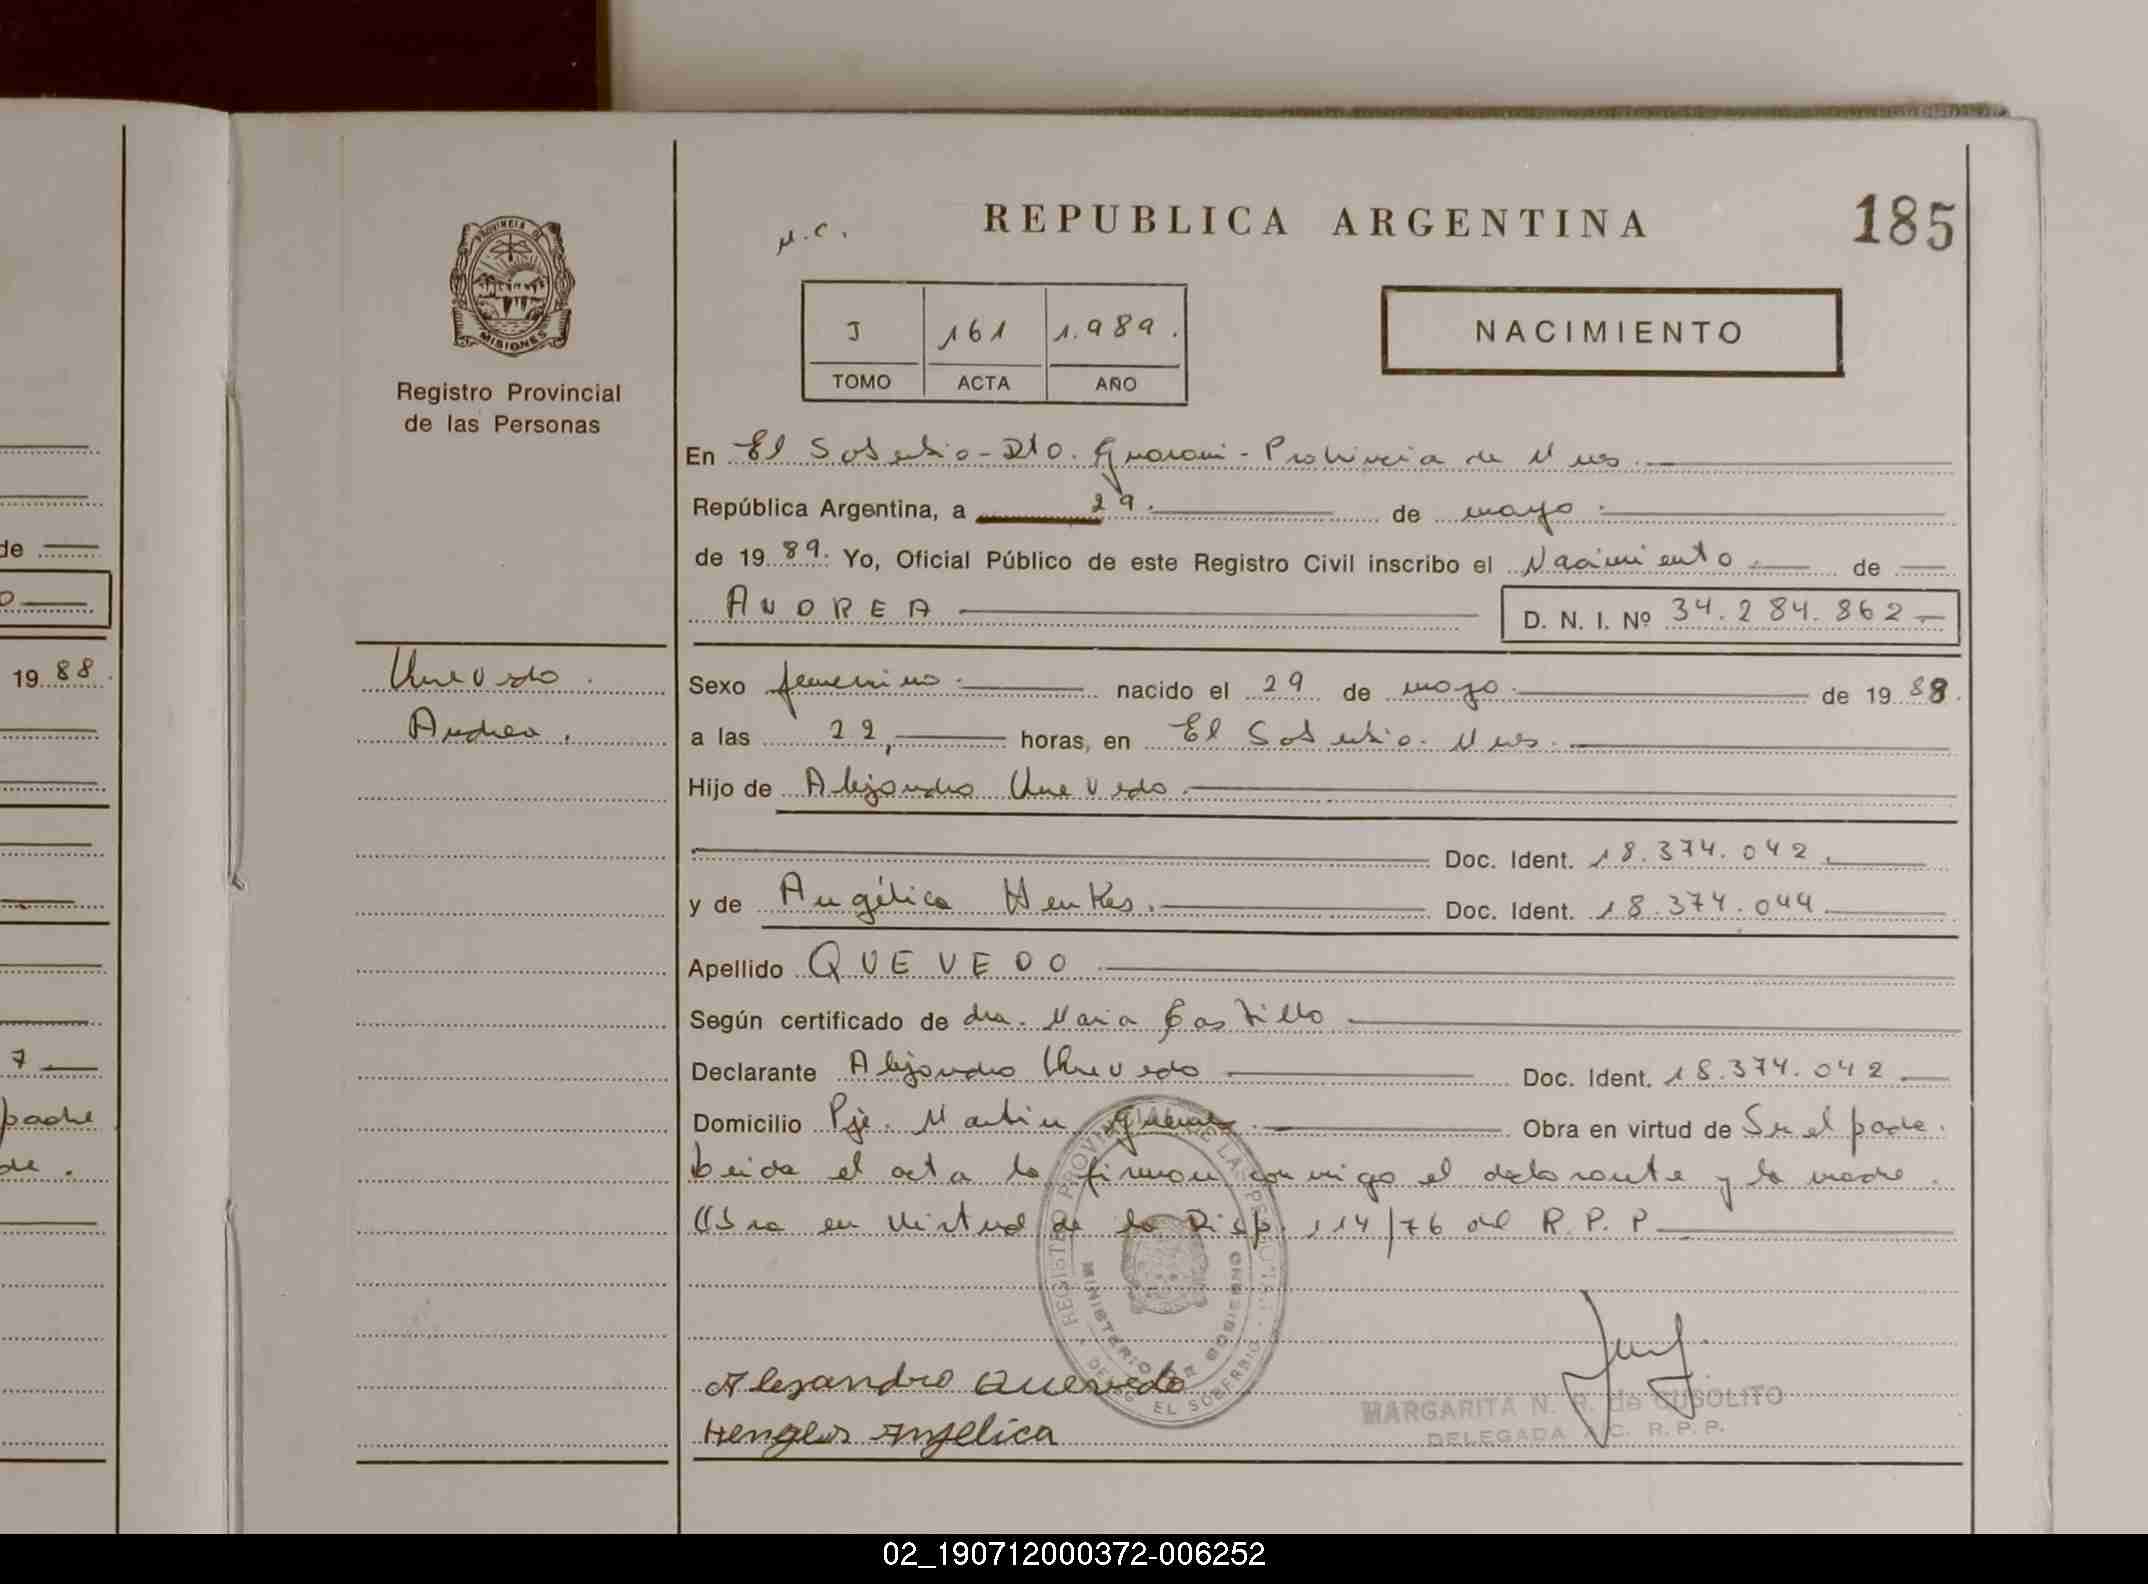 de
19 88.
7
padre
de.
PROVINCIA DE
MISIONES
Registro Provincial
de las Personas
Quevedo.
Andrea.
REPUBLICA ARGENTINA
185
I 161 1.989.
TOMO ACTA AÑO
NACIMIENTO
En El Soberbio - Dto. Guarani - Provincia de Mnes.
República Argentina, a 29. de mayo
de 19 89. Yo, Oficial Público de este Registro Civil inscribo el Nacimiento de
ANDREA D. N. I. Nº 34.284.862
Sexo femenino. nacido el 29 de mayo de 19 88.
a las 22, horas, en El Soberbio. Mnes.
Hijo de Alejandro Quevedo
Doc. Ident. 18.374.042
y de Angélica Henkes. Doc. Ident. 18.374.044
Apellido QUEVEDO
Según certificado de dra. Maria Castillo
Declarante Alejandro Quevedo Doc. Ident. 18.374.042
Domicilio Pje. Martin Obra en virtud de Ser el padre.
leida el acta la firman conmigo el declarante y la madre.
Obra en virtud de la Disp. 114/76 del R. P. P
REGISTRO PROVINCIAL DE LAS PERSONAS
MINISTERIO DE GOBIERNO
DELEG. EL SOBERBIO
Alejandro Quevedo
Henges Anjelica
MARGARITA N. R. de CUSOLITO
DELEGADA A/C. R. P. P.
02_190712000372-006252